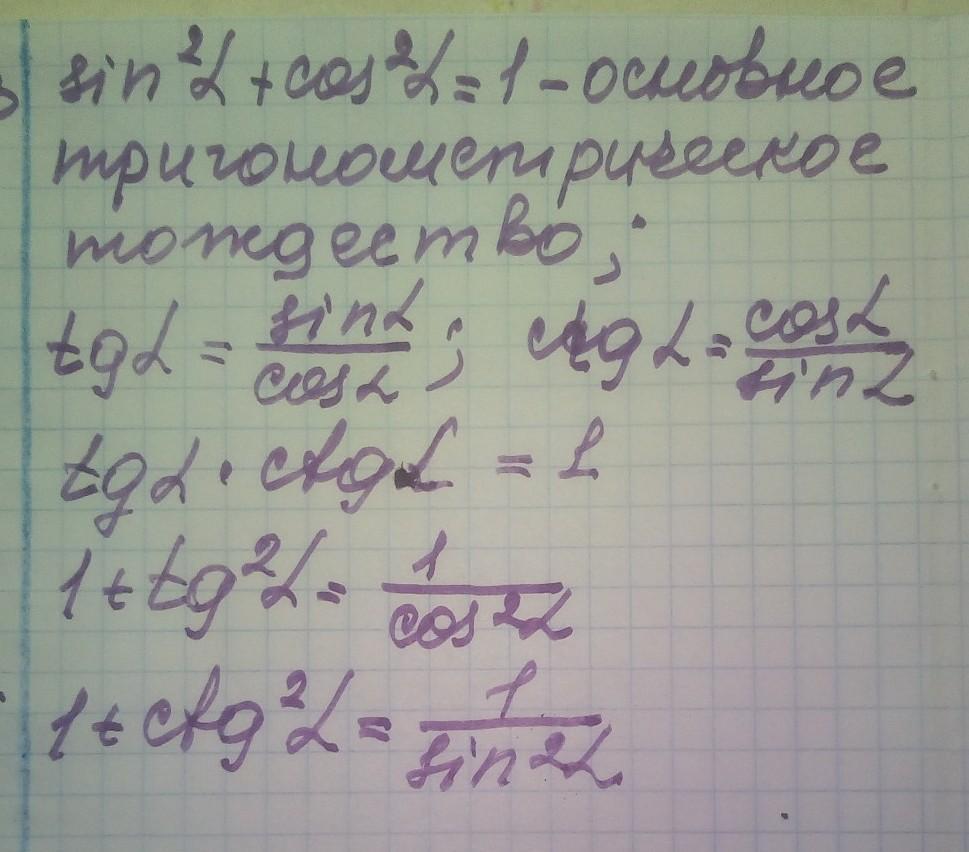 sin²α + cos²α = 1 – основное
тригонометрическое
тождество;
tgα = sinα/cosα; ctgα = cosα/sinα
tgα · ctgα = 1
1 + tg²α = 1/cos²α
1 + ctg²α = 1/sin²α